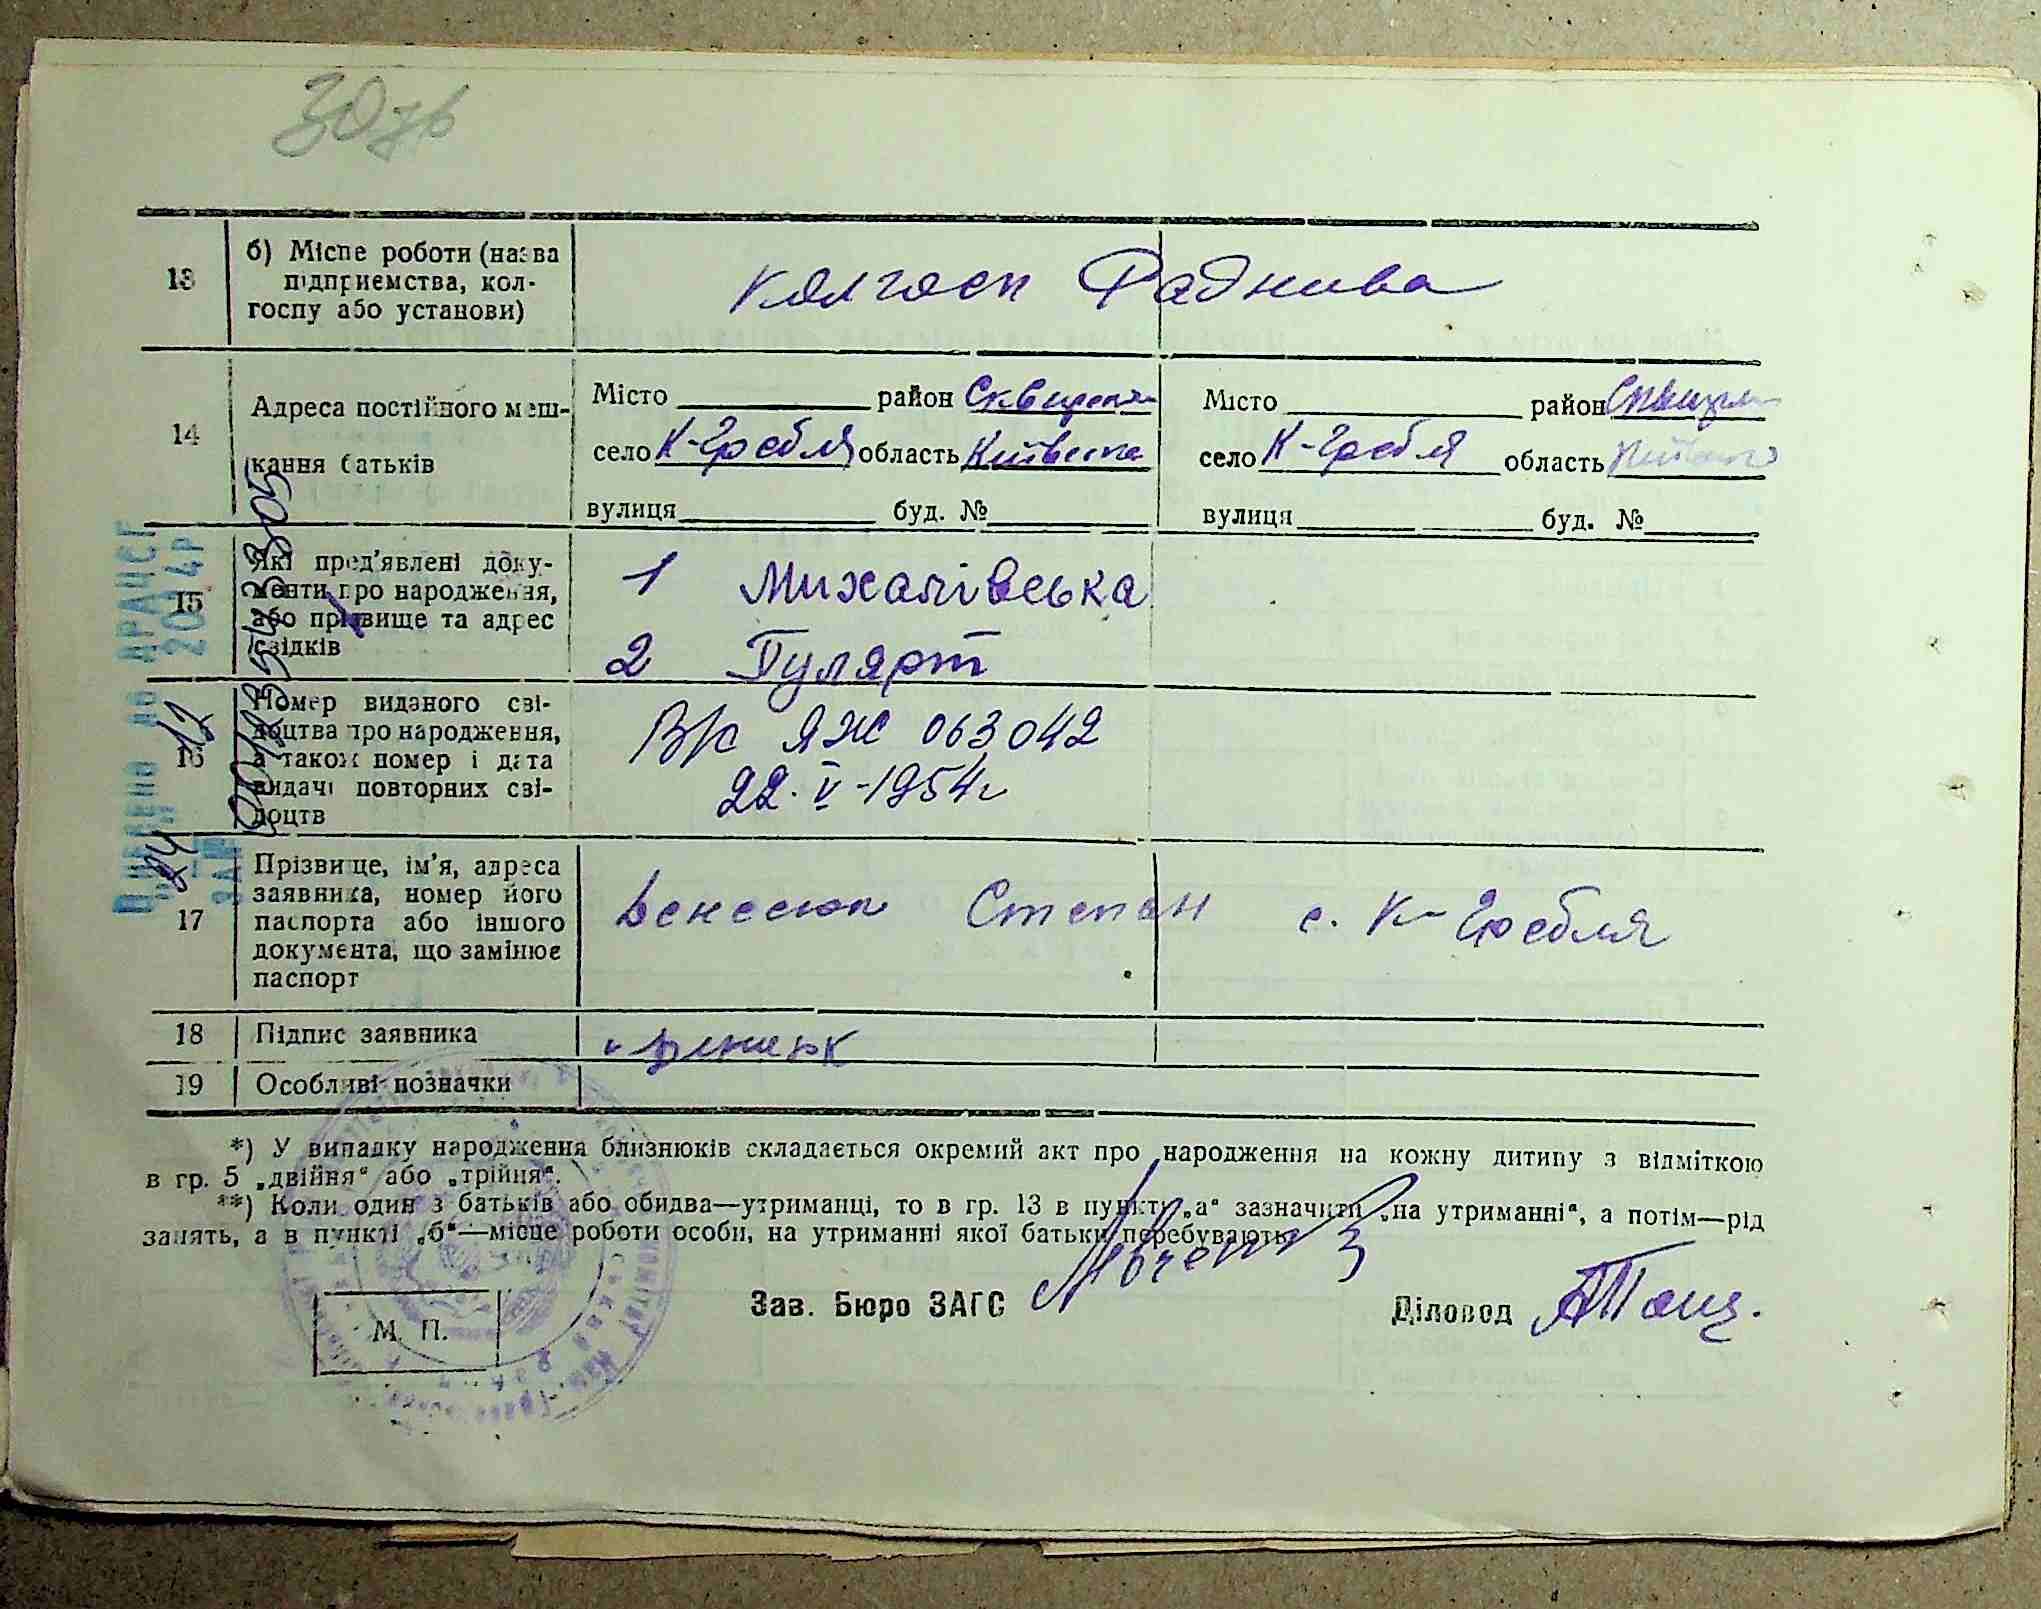 30 зв
13
б) Місце роботи (назва
підприємства, кол-
госпу або установи)
колгосп
14
Адреса постійного меш-
кання батьків
Місто район Сквирськ
село К-Гребля область Київська
вулиця буд. №
Місто район
село К-Гребля область
вулиця буд. №
15
Які пред'явлені доку-
менти про народження,
або прізвище та адрес
свідків
1 Михалівська
2 Гулярт
16
Номер виданого сві-
доцтва про народження,
а також номер і дата
видачі повторних сві-
доцтв
ЯЖ 063042
22. V-1954 г
17
Прізвище, ім'я, адреса
заявника, номер його
паспорта або іншого
документа, що замінює
паспорт
Степан с. К-Гребля
18
Підпис заявника
19
Особливі позначки
*) У випадку народження близнюків складається окремий акт про народження на кожну дитину з відміткою
в гр. 5 „двійня“ або „трійня“.
**) Коли один з батьків або обидва—утриманці, то в гр. 13 в пункті „а“ зазначити „на утриманні“, а потім—рід
занять, а в пункті „б“—місце роботи особи, на утриманні якої батьки перебувають.
Зав. Бюро ЗАГС
Діловод
М. П.
до ДРАЦСГ
2014р
12
24